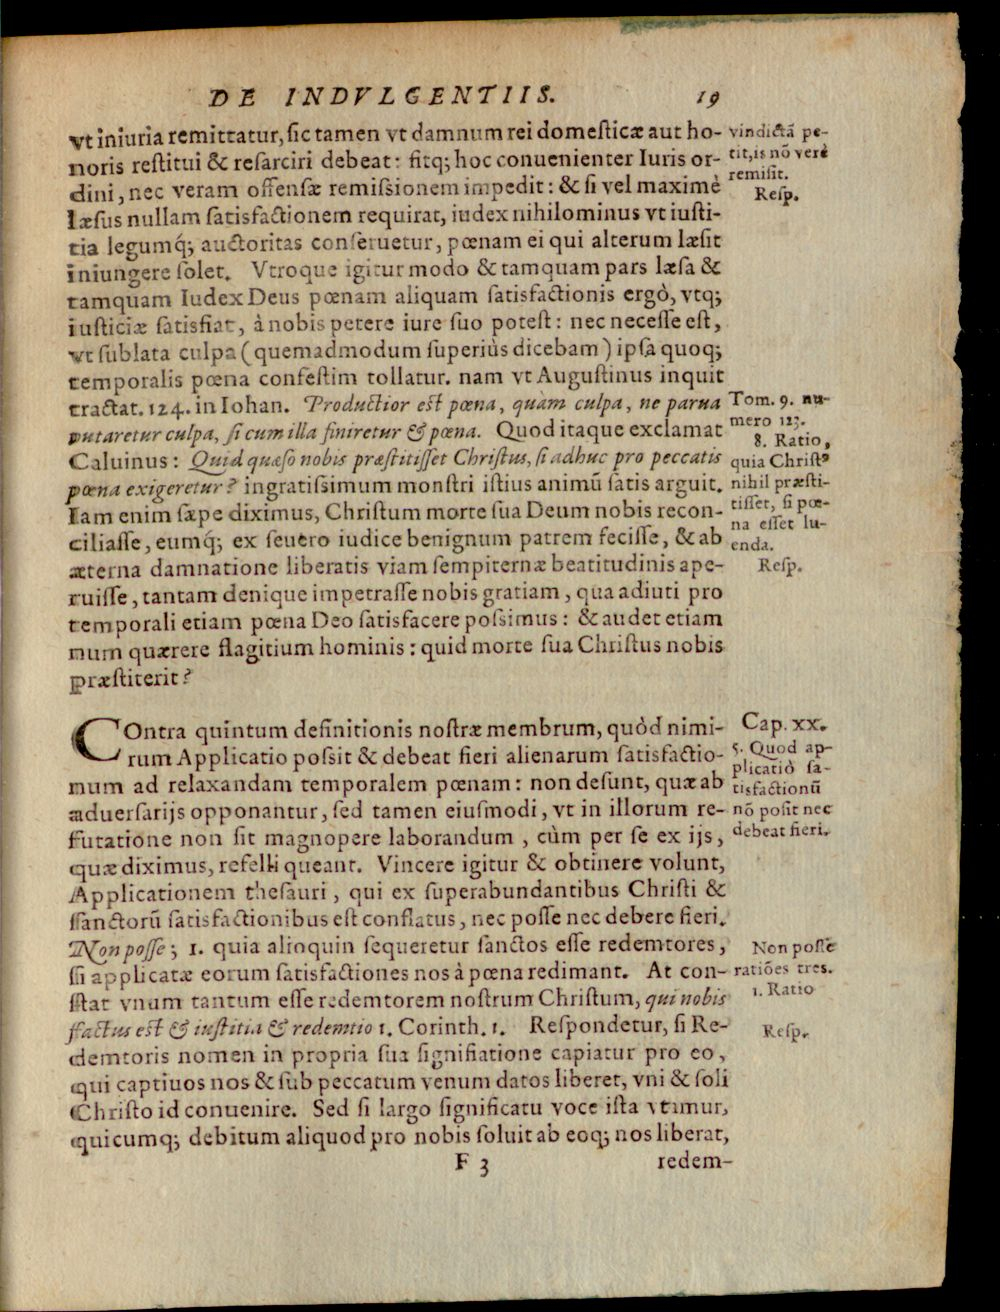 DE INDVLGENTIIS. 19
vt iniuria remittatur, sic tamen vt damnum rei domesticæ aut ho-
noris restitui & resarciri debeat: fitq; hoc conuenienter Iuris or-
dini, nec veram offensæ remissionem impedit: & si vel maximè
læsus nullam satisfactionem requirat, iudex nihilominus vt iusti-
tia legumq́; auctoritas conseruetur, pœnam ei qui alterum læsit
iniungere solet. Vtroque igitur modo & tamquam pars læsa &
tamquam Iudex Deus pœnam aliquam satisfactionis ergò, vtq;
iusticiæ satisfiat, à nobis petere iure suo potest: nec necesse est,
vt sublata culpa (quemadmodum superiùs dicebam) ipsa quoq;
temporalis pœna confestim tollatur. nam vt Augustinus inquit
tractat. 124. in Iohan. Productior est pœna, quàm culpa, ne parua
putaretur culpa, si cum illa finiretur & pœna. Quod itaque exclamat
Caluinus: Quid quæso nobis præstitisset Christus, si adhuc pro peccatis
pœna exigeretur? ingratissimum monstri istius animũ satis arguit.
Iam enim sæpe diximus, Christum morte sua Deum nobis recon-
ciliasse, eumq́; ex seuero iudice benignum patrem fecisse, & ab
æterna damnatione liberatis viam sempiternæ beatitudinis ape-
ruisse, tantam denique impetrasse nobis gratiam, qua adiuti pro
temporali etiam pœna Deo satisfacere possimus: & audet etiam
num quærere flagitium hominis: quid morte sua Christus nobis
præstiterit?
vindictã pe-
tit, is nõ verè
remisit.
Resp.
Tom. 9. nu-
mero 123.
8. Ratio,
quia Christꝰ
nihil præsti-
tisset, si pœ-
na esset lu-
enda.
Resp.
COntra quintum definitionis nostræ membrum, quòd nimi-
rum Applicatio possit & debeat fieri alienarum satisfactio-
num ad relaxandam temporalem pœnam: non desunt, quæ ab
aduersarijs opponantur, sed tamen eiusmodi, vt in illorum re-
futatione non sit magnopere laborandum, cùm per se ex ijs,
quæ diximus, refelli queant. Vincere igitur & obtinere volunt,
Applicationem thesauri, qui ex superabundantibus Christi &
sanctorũ satisfactionibus est conflatus, nec posse nec debere fieri.
Non posse; 1. quia alioquin sequeretur sanctos esse redemtores,
si applicatæ eorum satisfactiones nos à pœna redimant. At con-
stat vnum tantum esse redemtorem nostrum Christum, qui nobis
factus est & iustitia & redemtio 1. Corinth. 1. Respondetur, si Re-
demtoris nomen in propria sua signifiatione capiatur pro eo,
qui captiuos nos & sub peccatum venum datos liberet, vni & soli
Christo id conuenire. Sed si largo significatu voce ista vtimur,
quicumq; debitum aliquod pro nobis soluit ab eoq; nos liberat,
Cap. XX.
5. Quod ap-
plicatiò sa-
tisfactionũ
nõ possit nec
debeat fieri.
Non posse
ratiões tres.
1. Ratio
Resp.
F 3 redem-